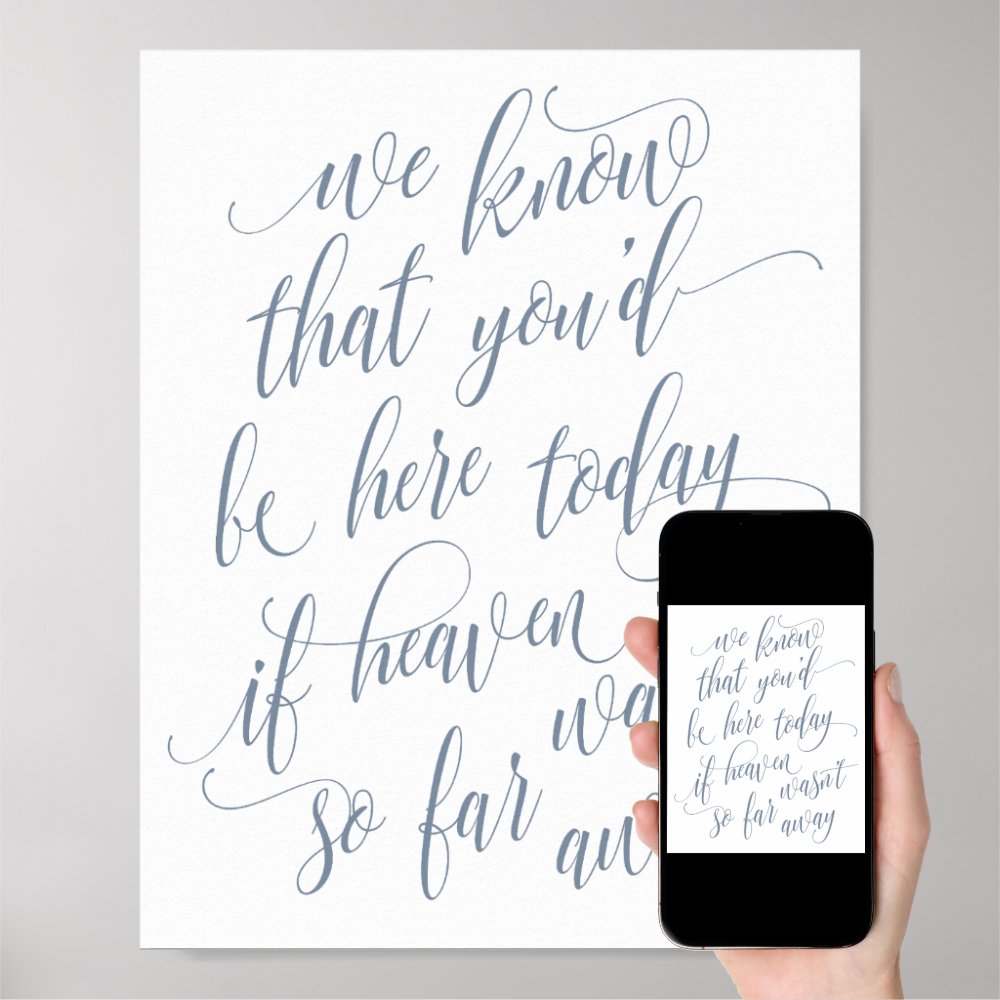 we know
that you'd
be here today
if heaven
wa
so far
aw
we know
that you'd
be here today
if heaven
wasn't
so far
away